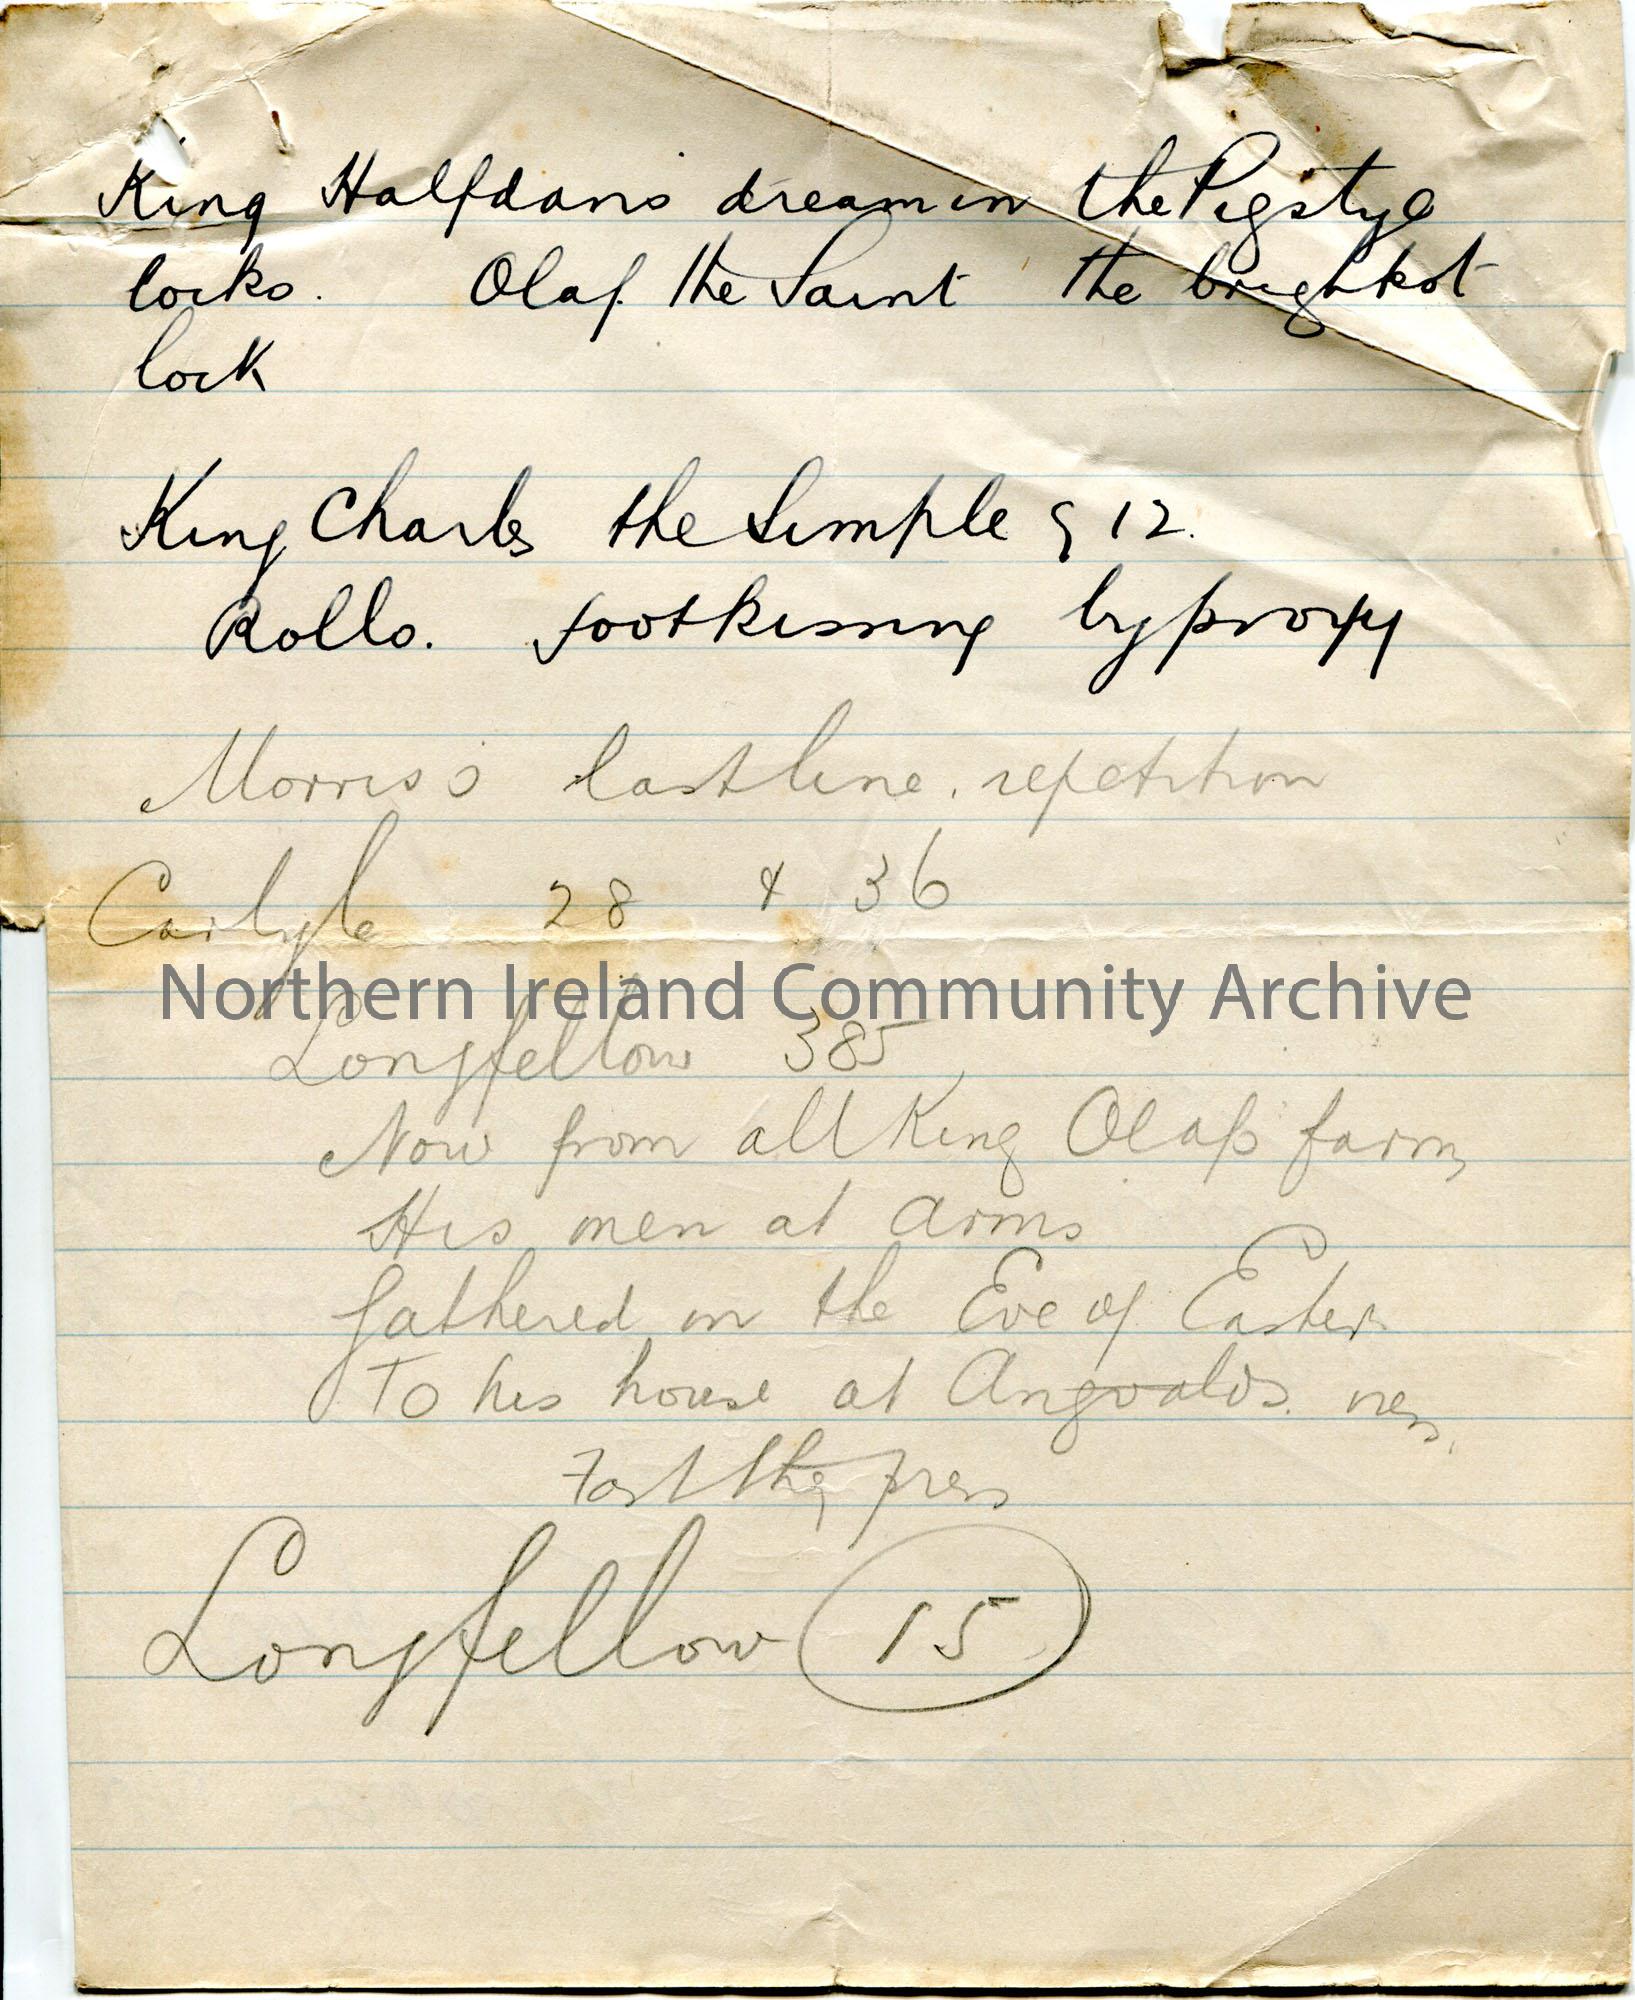 King Halfdans dream in the Pigstye
locks. Olaf the Saint the brightest
lock
King Charles the Simple 912.
Rollo. footkissing by proxy
Morris's last line. repetition
Carlyle 28 & 36
Northern Ireland Community Archive
Longfellow 385
Now from all King Olafs farms
His men at arms
Gathered on the Eve of Easter
To his house at Angvalds. ness.
Fast they press
Longfellow 15